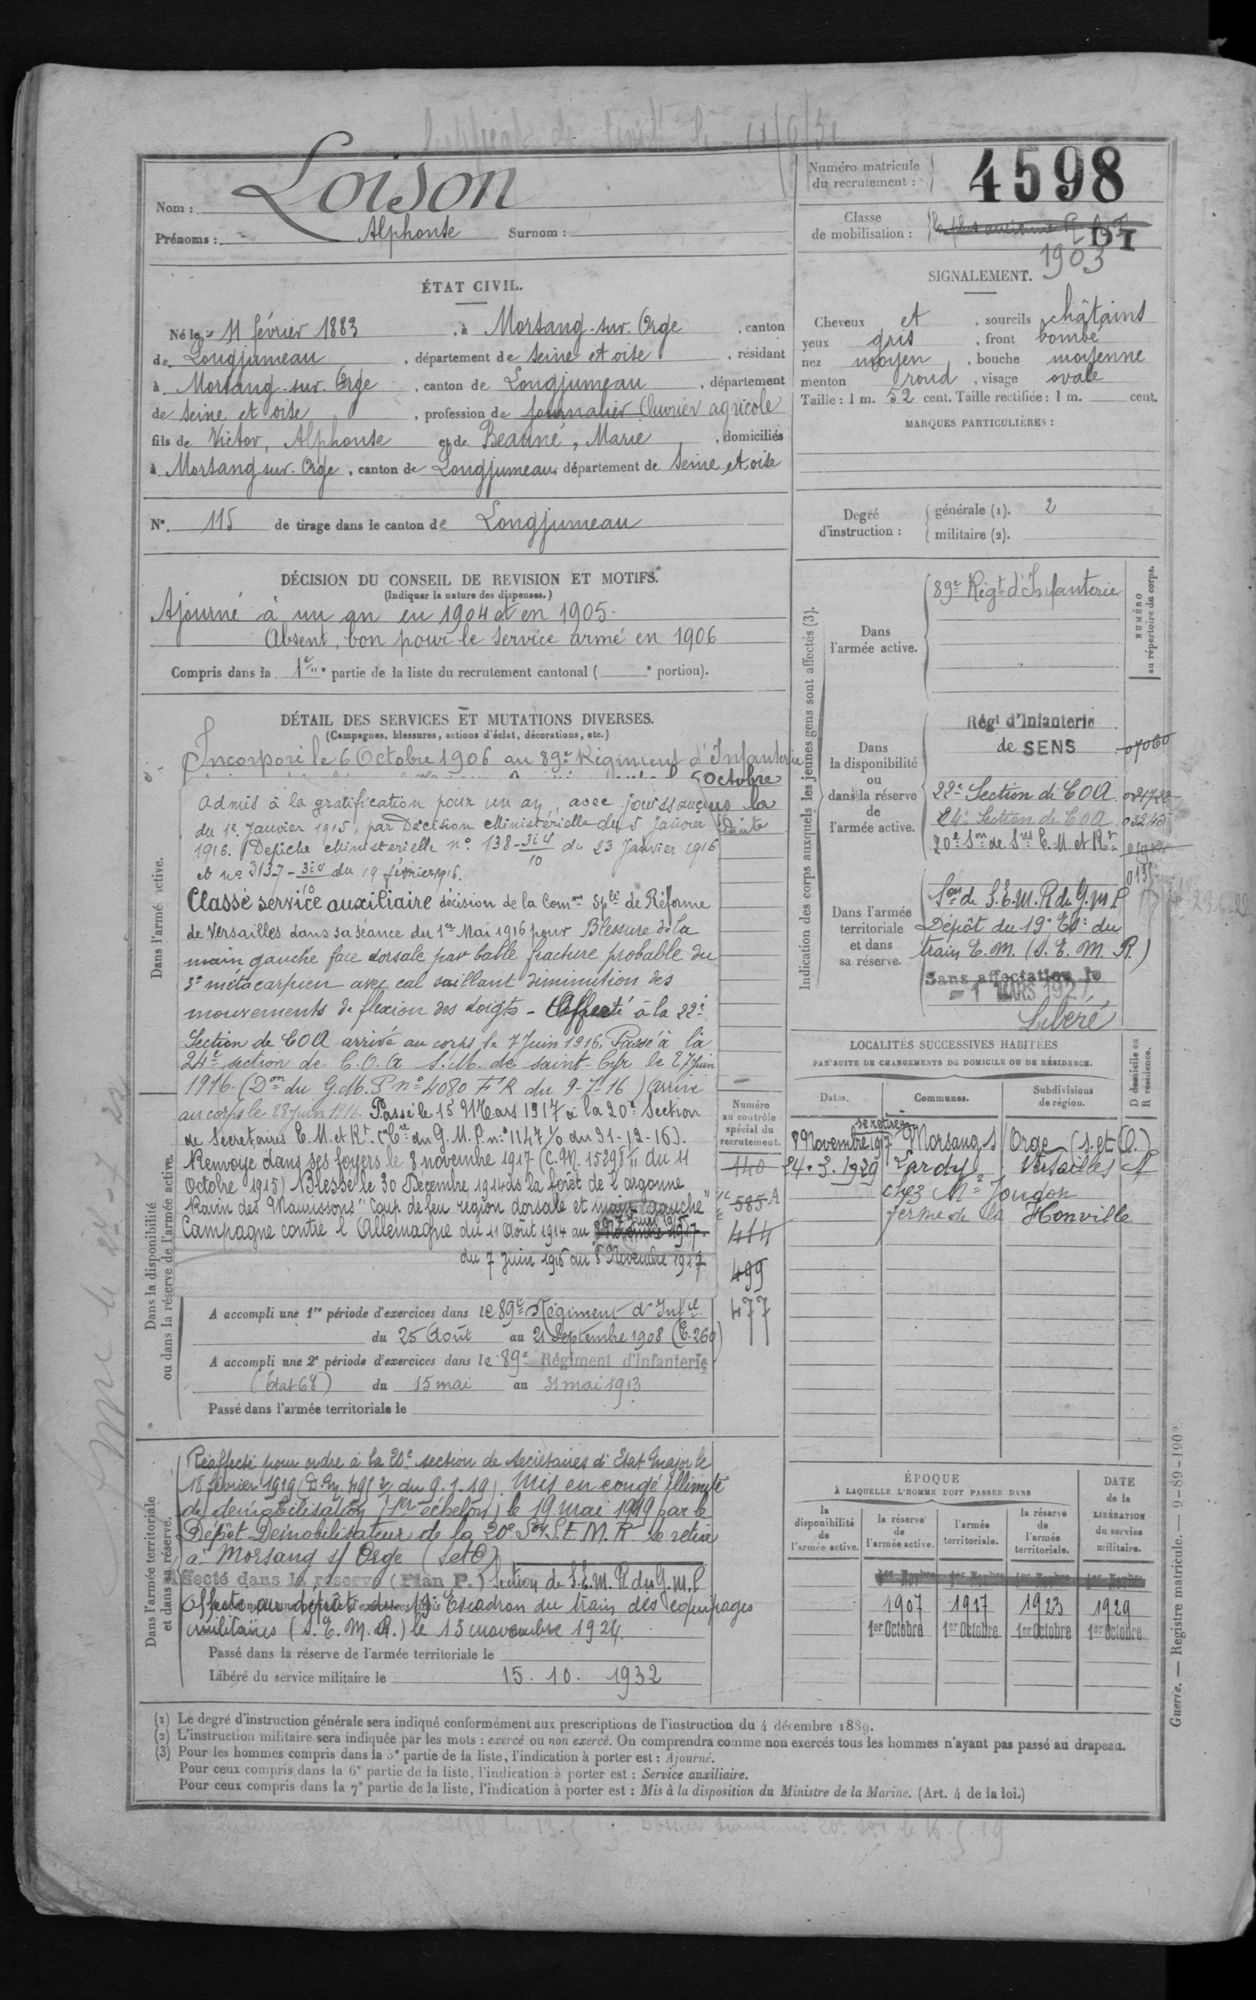 Nom : Loison
Prénoms : Alphonse Surnom :
Numéro matricule du recrutement : 4598
Classe de mobilisation : DI
1903
ÉTAT CIVIL.
Né le 11 février 1883, à Morsang-sur-Orge, canton
de Longjumeau, département de Seine et oise, résidant
à Morsang-sur-Orge, canton de Longjumeau, département
de Seine et oise, profession de journalier Ouvrier agricole
fils de Victor, Alphonse et de Beauné, Marie, domiciliés
à Morsang-sur-Orge, canton de Longjumeau, département de Seine et oise
N° 115 de tirage dans le canton de Longjumeau
SIGNALEMENT.
Cheveux et, sourcils châtains
yeux gris, front bombé
nez moyen, bouche moyenne
menton rond, visage ovale
Taille : 1 m. 52 cent. Taille rectifiée : 1 m. cent.
MARQUES PARTICULIÈRES :
Degré d'instruction : générale (1). 2
militaire (2).
DÉCISION DU CONSEIL DE REVISION ET MOTIFS.
(Indiquer la nature des dispenses.)
Ajourné à un an en 1904 et en 1905.
Absent, bon pour le service armé en 1906
Compris dans la 1re partie de la liste du recrutement cantonal ( e portion).
DÉTAIL DES SERVICES ET MUTATIONS DIVERSES.
(Campagnes, blessures, actions d'éclat, décorations, etc.)
Dans l'armée active.
Incorporé le 6 Octobre 1906 au 89e Régiment d'Infanterie
5 Octobre
Admis à la gratification pour un an, avec jouissance
du 1er Janvier 1915, par Décision Ministérielle du 5 Janvier
1916. Dépêche Ministérielle n° 138 - 3i4/10 du 23 Janvier 1916
et n° 3137 - 3i4/10 du 19 février 1916.
Classé service auxiliaire décision de la Comon Sple de Réforme
de Versailles dans sa séance du 1er Mai 1916 pour Blessure de la
main gauche face dorsale par balle fracture probable du
3e métacarpien avec cal saillant diminution des
mouvements de flexion des doigts - Affecté à la 22e
Section de COA arrivé au corps le 7 Juin 1916. Passé à la
24e section de C.O.A S.M. de Saint Cyr le 27 juin
1916. (Don du G.M.P n° 4080 F1R du 9-7-16) arrivé
au corps le 28 juin 1916. Passé le 15 Mars 1917 à la 20e Section
de Secrétaires E.M. et Rt. (Cre du G.M.P. n° 11471/0 du 31-12-16).
Renvoyé dans ses foyers le 8 novembre 1917 (C.M. 15298 1/11 du 11
Octobre 1915) Blessé le 30 Décembre 1914 ds la forêt de l'argonne
Ravin des Maurissons" Coup de feu région dorsale et main gauche"
Campagne contre l'Allemagne du 11 Août 1914 au 8 Novembre 1917.
du 7 Juin 1916 au 8 Novembre 1917
Dans la disponibilité ou dans la réserve de l'armée active.
A accompli une 1re période d'exercices dans le 89e Régiment d'Infie
du 25 Août au 21 Septembre 1908 (E.269)
A accompli une 2e période d'exercices dans le 89e Régiment d'Infanterie
(Etat 68) du 15 mai au 31 mai 1913
Passé dans l'armée territoriale le
Dans l'armée territoriale et dans sa réserve.
Réaffecté pour ordre à la 20e section de Secrétaires d'Etat Major le
18 février 1919. Mis en congé illimité
de démobilisation (1er échelon) le 19 mai 1919 par le
Dépôt Démobilisateur de la 20e Son S.E.M.R. se retire
à Morsang s/ Orge (S et O)
Affecté dans la réserve (Plan P.) Section de S.E.M.R du G.M.P
Affecté au dépôt du 19e Escadron du train des équipages
militaires (S.E.M.R.) le 13 novembre 1924.
Passé dans la réserve de l'armée territoriale le
Libéré du service militaire le 15. 10. 1932
Numéro au contrôle spécial du recrutement.
140
585 A
414
499
477
Indication des corps auxquels les jeunes gens sont affectés (3).
NUMÉRO au répertoire du corps.
Dans l'armée active. 89e Régt d'Infanterie
Dans la disponibilité ou dans la réserve de l'armée active.
Régt d'Infanterie
de SENS 07060
22e Section de COA
24e Section de COA 03245
20e Son de Sres E.M. et Rt
Dans l'armée territoriale et dans sa réserve.
Son de S.E.M.R du G.M.P
Dépôt du 19e Eon du
train E.M. (S.E.M.R.)
Sans affectation le
1 MARS 1927
Libéré
LOCALITÉS SUCCESSIVES HABITÉES
PAR SUITE DE CHANGEMENTS DE DOMICILE OU DE RÉSIDENCE.
Dates. Communes. Subdivisions de région. D domicile ou R résidence.
se retire à
8 Novembre 1917 Morsang s/ Orge (S. et O.)
24.3.1929 Lardy Versailles R
chez Mr Joudon
ferme de la Honville
ÉPOQUE
À LAQUELLE L'HOMME DOIT PASSER DANS
la disponibilité de l'armée active.
la réserve de l'armée active.
l'armée territoriale.
la réserve de l'armée territoriale.
DATE de la LIBÉRATION du service militaire.
1907 1917 1923 1929
1er Octobre 1er Octobre 1er Octobre 1er Octobre
(1) Le degré d'instruction générale sera indiqué conformément aux prescriptions de l'instruction du 4 décembre 1889.
(2) L'instruction militaire sera indiquée par les mots : exercé ou non exercé. On comprendra comme non exercés tous les hommes n'ayant pas passé au drapeau.
(3) Pour les hommes compris dans la 5e partie de la liste, l'indication à porter est : Ajourné.
Pour ceux compris dans la 6e partie de la liste, l'indication à porter est : Service auxiliaire.
Pour ceux compris dans la 7e partie de la liste, l'indication à porter est : Mis à la disposition du Ministre de la Marine. (Art. 4 de la loi.)
Guerre. — Registre matricule. — 9-89-1902.